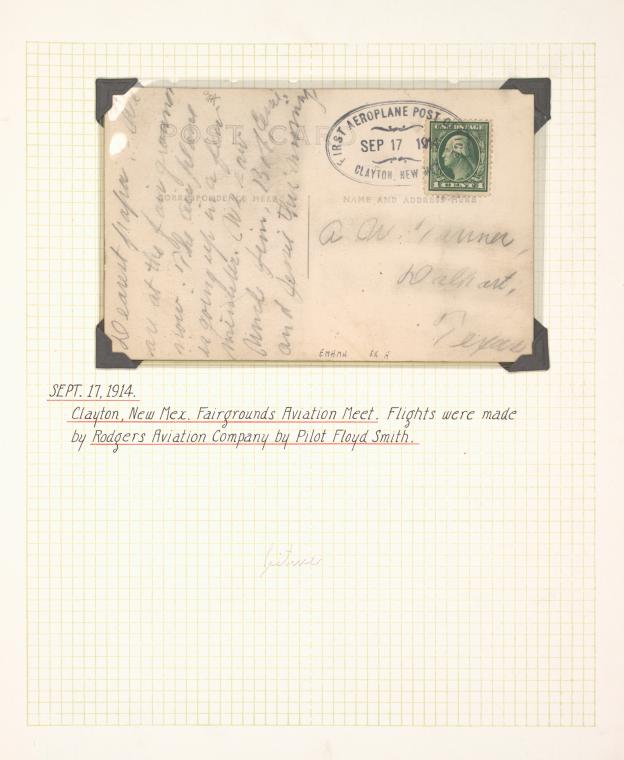 POST CARD
CORRESPONDENCE HERE
NAME AND ADDRESS HERE
FIRST AEROPLANE POST
SEP 17 1914
CLAYTON, NEW
U.S. POSTAGE
1 CENT 1
Dearest papa: We
are at the fair grounds
now. The aeroplane
is going up in a few
minutes.
Uncle Jim,
and Jessie this
A. W. Tanner,
Dalhart,
Texas
SEPT. 17, 1914.
Clayton, New Mex. Fairgrounds Aviation Meet. Flights were made
by Rodgers Aviation Company by Pilot Floyd Smith.